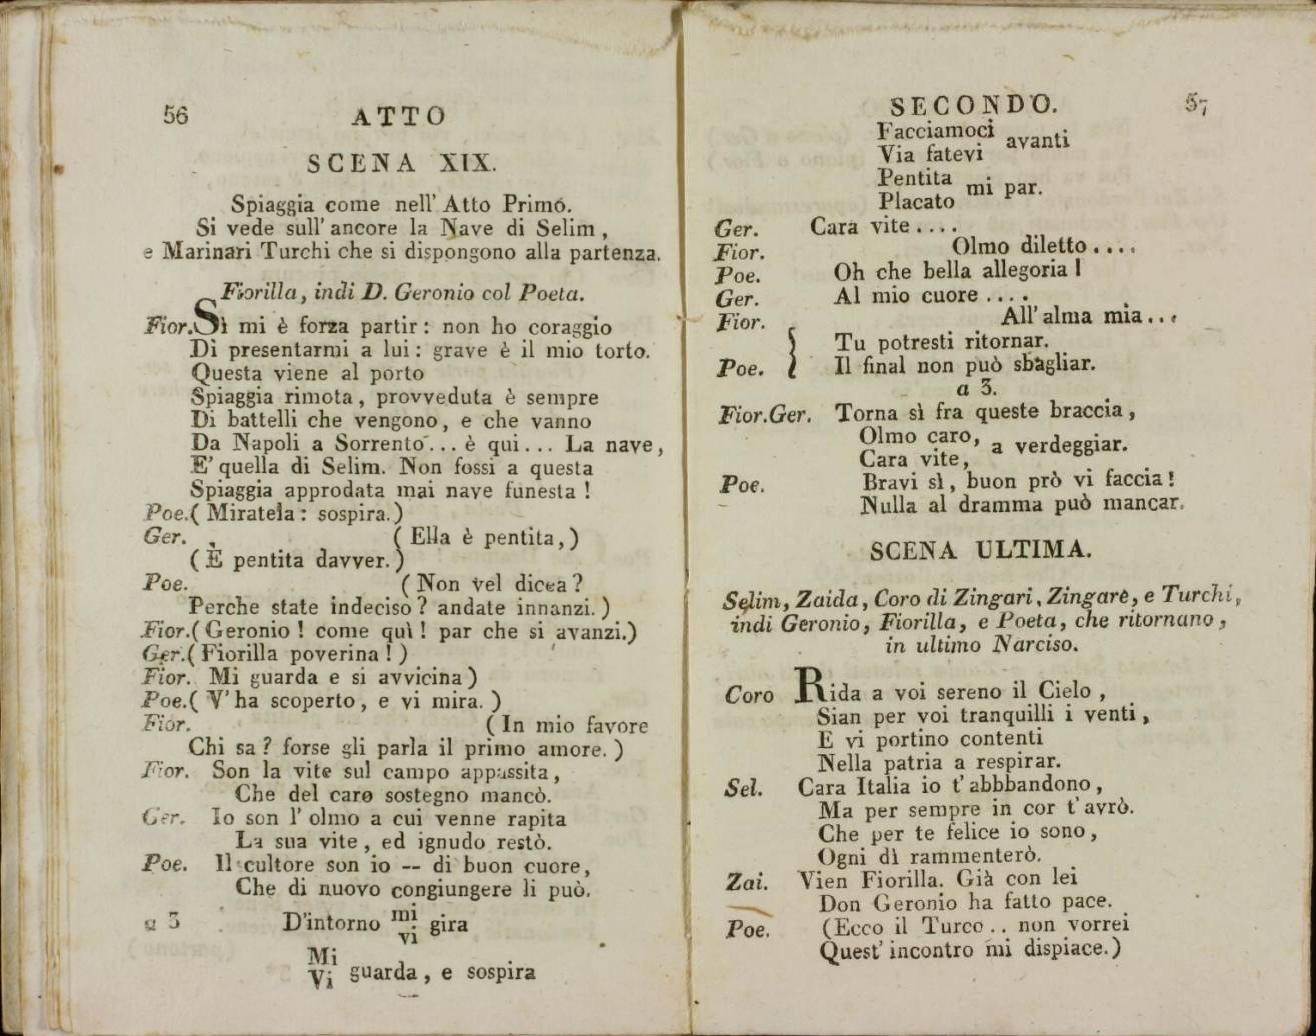 56 ATTO
SCENA XIX.
Spiaggia come nell' Atto Primo.
Si vede sull' ancore la Nave di Selim ,
e Marinari Turchi che si dispongono alla partenza.
Fiorilla, indi D. Geronio col Poeta.
Fior. Sì mi è forza partir : non ho coraggio
Di presentarmi a lui : grave è il mio torto.
Questa viene al porto
Spiaggia rimota , provveduta è sempre
Di battelli che vengono , e che vanno
Da Napoli a Sorrento ... è qui ... La nave ,
E' quella di Selim. Non fossi a questa
Spiaggia approdata mai nave funesta !
Poe. ( Miratela : sospira.)
Ger. ( Ella è pentita,)
( E pentita davver. )
Poe. ( Non vel dicea ?
Perche state indeciso ? andate innanzi. )
Fior. ( Geronio ! come quì ! par che si avanzi.)
Ger. ( Fiorilla poverina ! )
Fior. Mi guarda e si avvicina )
Poe. ( V' ha scoperto , e vi mira. )
Fior. ( In mio favore
Chi sa ? forse gli parla il primo amore. )
Fior. Son la vite sul campo appassita ,
Che del caro sostegno mancò.
Ger. Io son l' olmo a cui venne rapita
La sua vite , ed ignudo restò.
Poe. Il cultore son io -- di buon cuore,
Che di nuovo congiungere li può.
a 3 D'intorno mi gira
vi
Mi
Vi guarda , e sospira
SECONDO. 57
Facciamoci avanti
Via fatevi
Pentita mi par.
Placato
Ger. Cara vite ....
Fior. Olmo diletto ....
Poe. Oh che bella allegoria !
Ger. Al mio cuore ....
Fior. All' alma mia...
{ Tu potresti ritornar.
Poe. Il final non può sbagliar.
a 3.
Fior.Ger. Torna sì fra queste braccia ,
Olmo caro, a verdeggiar.
Cara vite,
Poe. Bravi sì , buon prò vi faccia !
Nulla al dramma può mancar.
SCENA ULTIMA.
Selim, Zaida, Coro di Zingari, Zingare, e Turchi,
indi Geronio, Fiorilla, e Poeta, che ritornano,
in ultimo Narciso.
Coro Rida a voi sereno il Cielo ,
Sian per voi tranquilli i venti ,
E vi portino contenti
Nella patria a respirar.
Sel. Cara Italia io t' abbbandono ,
Ma per sempre in cor t' avrò.
Che per te felice io sono ,
Ogni dì rammenterò.
Zai. Vien Fiorilla. Già con lei
Don Geronio ha fatto pace.
Poe. (Ecco il Turco .. non vorrei
Quest' incontro mi dispiace.)